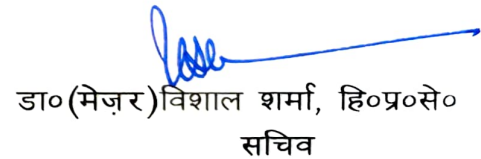 डा०(मेज़र)विशाल शर्मा, हि०प्र०से०
सचिव